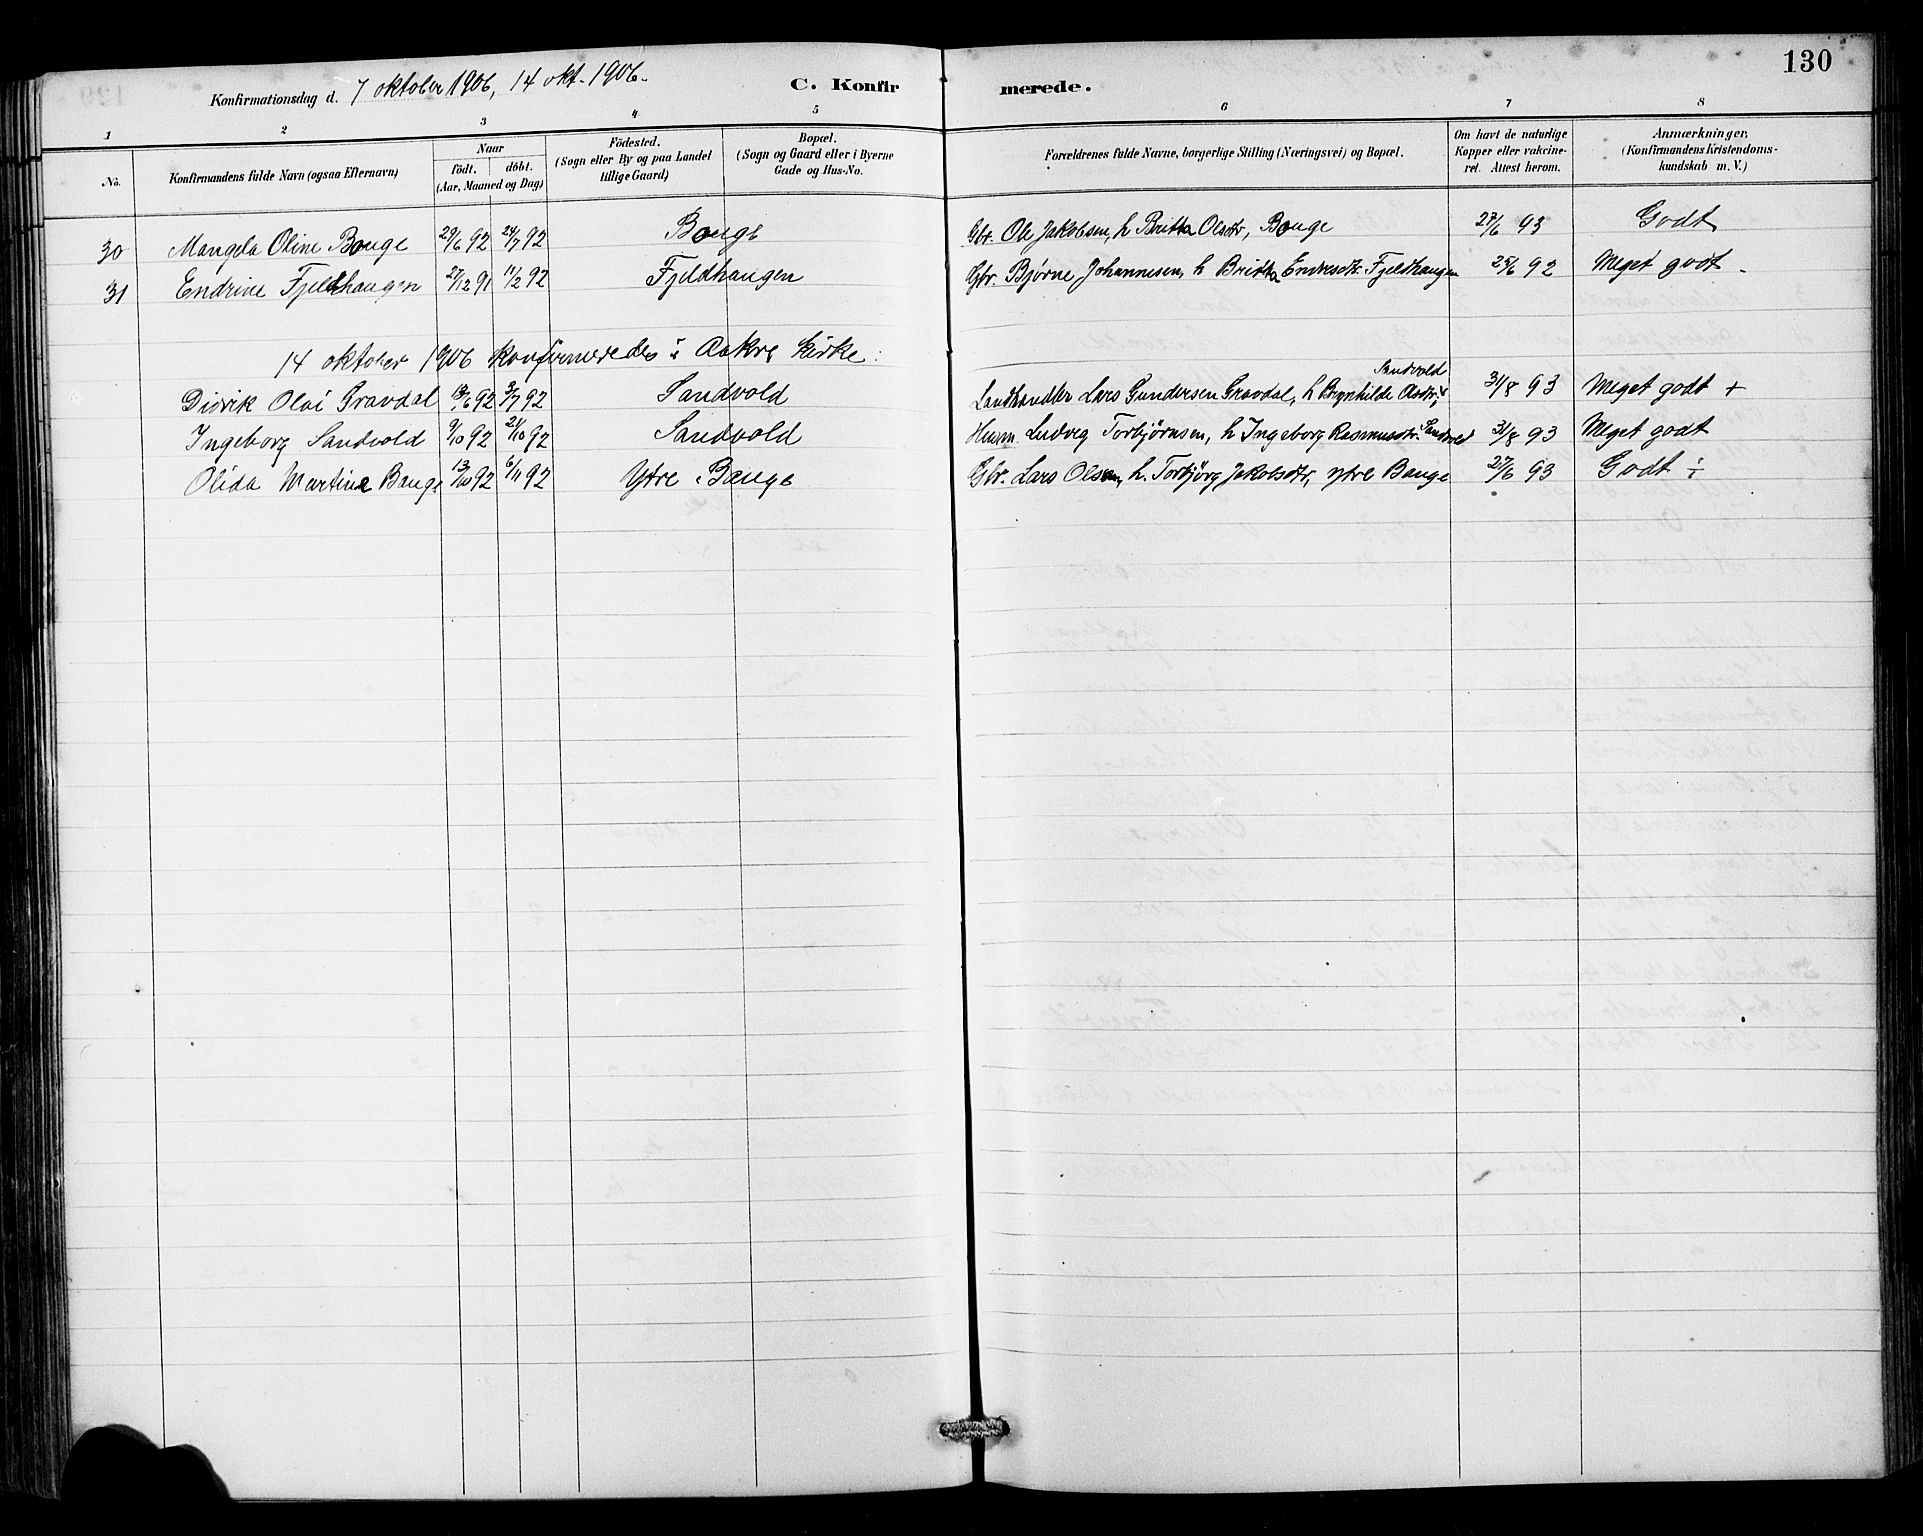 130
Konfirmationsdag d. 7 oktober 1906, 14 okt. 1906.
C. Konfirmerede.
1 2 3 4 5 6 7 8
No.
Konfirmandens fulde Navn (ogsaa Efternavn)
Naar
födt. döbt.
(Aar, Maaned og Dag)
Födested.
(Sogn eller By og paa Landet
tillige Gaard)
Bopæl.
(Sogn og Gaard eller i Byerne
Gade og Hus-No.
Forældrenes fulde Navne, borgerlige Stilling (Næringsvei) og Bopæl.
Om havt de naturlige
Kopper eller vakcine-
ret. Attest herom.
Anmærkninger.
(Konfirmandens Kristendoms-
kundskab m. V.)
30 Mangela Oline Bauge 29/6 92 24/7 92 Bauge Gbr. Ole Jakobsen, h Britta Olsdtr, Bauge 27/6 93 Godt
31 Endrine Fjeldhaugen 27/12 91 14/2 92 Fjeldhaugen Gbr. Bjørne Johannesen, h Britta Endresdtr. Fjeldhaugen 25/6 92 Meget godt -
14 oktober 1906 konfirmeredes i Aakre kirke:
Divrik Olai Gravdal 13/6 92 3/7 92 Sandvold Landhandler Lars Gundersen Gravdal, h Brynhilde Sandvold 31/8 93 Meget godt +
Ingeborg Sandvold 9/10 92 21/10 92 Sandvold Husm. Ludvig Torbjørnsen, h Ingeborg Rasmusdtr. Sandvold 31/8 93 Meget godt
Olida Martine Bauge 13/10 92 6/11 92 Ytre Bauge Gbr. Lars Olsen, h. Torbjørg Jakobsdtr, ytre Bauge 27/6 93 Godt ÷